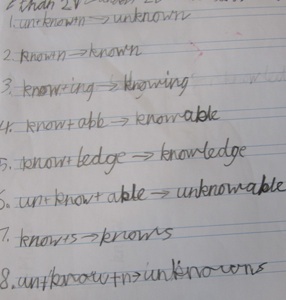 than 20
1. un+known→unknown
2. known→known
3. know+ing→knowing
4. know+able→knowable
5. know+ledge→knowledge
6. un+know+able→unknowable
7. know+s→knows
8. un+know+n→unknowns